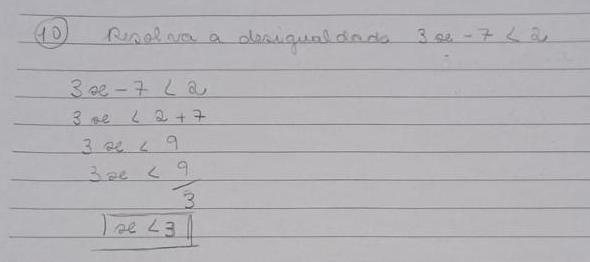 10 Resolva a desigualdade 3x - 7 < 2
3x - 7 < 2
3x < 2 + 7
3x < 9
3x < 9/3
x < 3